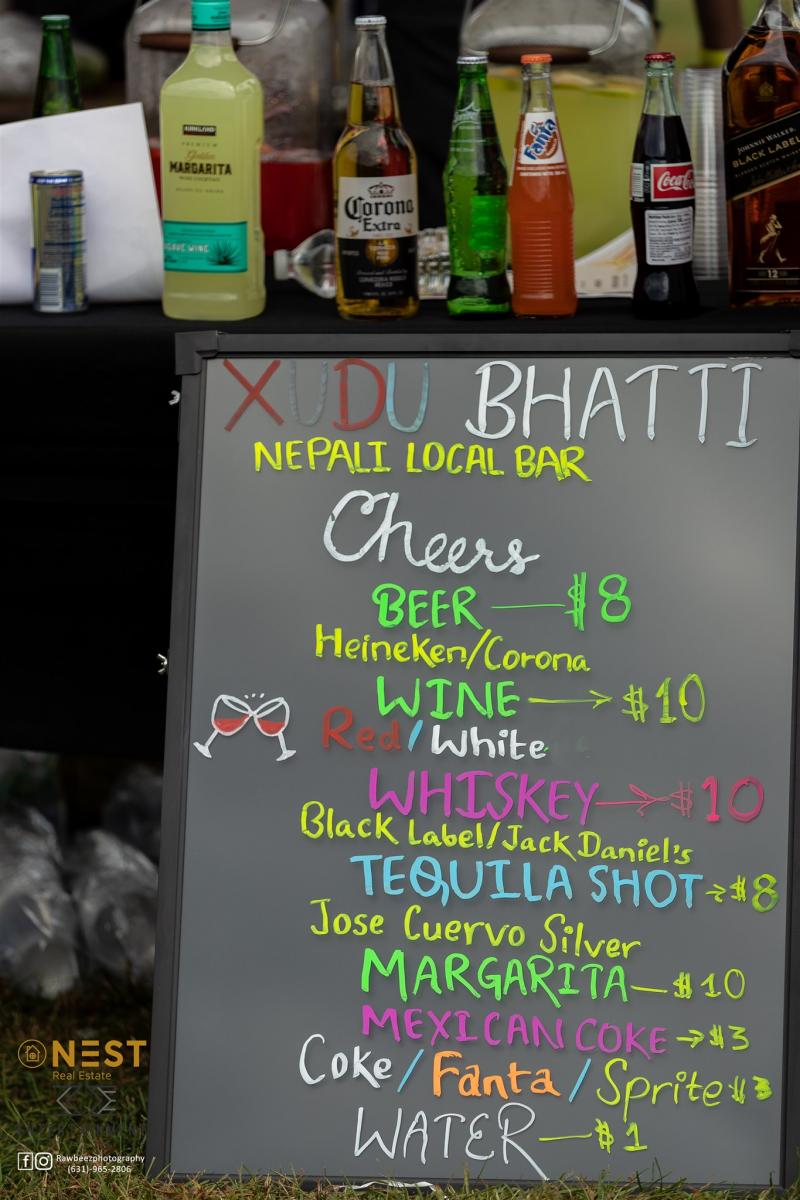 KIRKLAND
PREMIUM
Golden
MARGARITA
WINE COCKTAIL
READY TO DRINK
AGAVE WINE
Corona
Extra
Fanta
Coca-Cola
JOHNNIE WALKER
BLACK LABEL
12
XUDU BHATTI
NEPALI LOCAL BAR
Cheers
BEER — $8
Heineken/Corona
WINE → $10
Red/White
WHISKEY → $10
Black Label/Jack Daniel's
TEQUILA SHOT → $8
Jose Cuervo Silver
MARGARITA — $10
MEXICAN COKE → $3
Coke/Fanta/Sprite $3
WATER — $1
NEST
Real Estate
Rawbeezphotography
(631)-965-2806